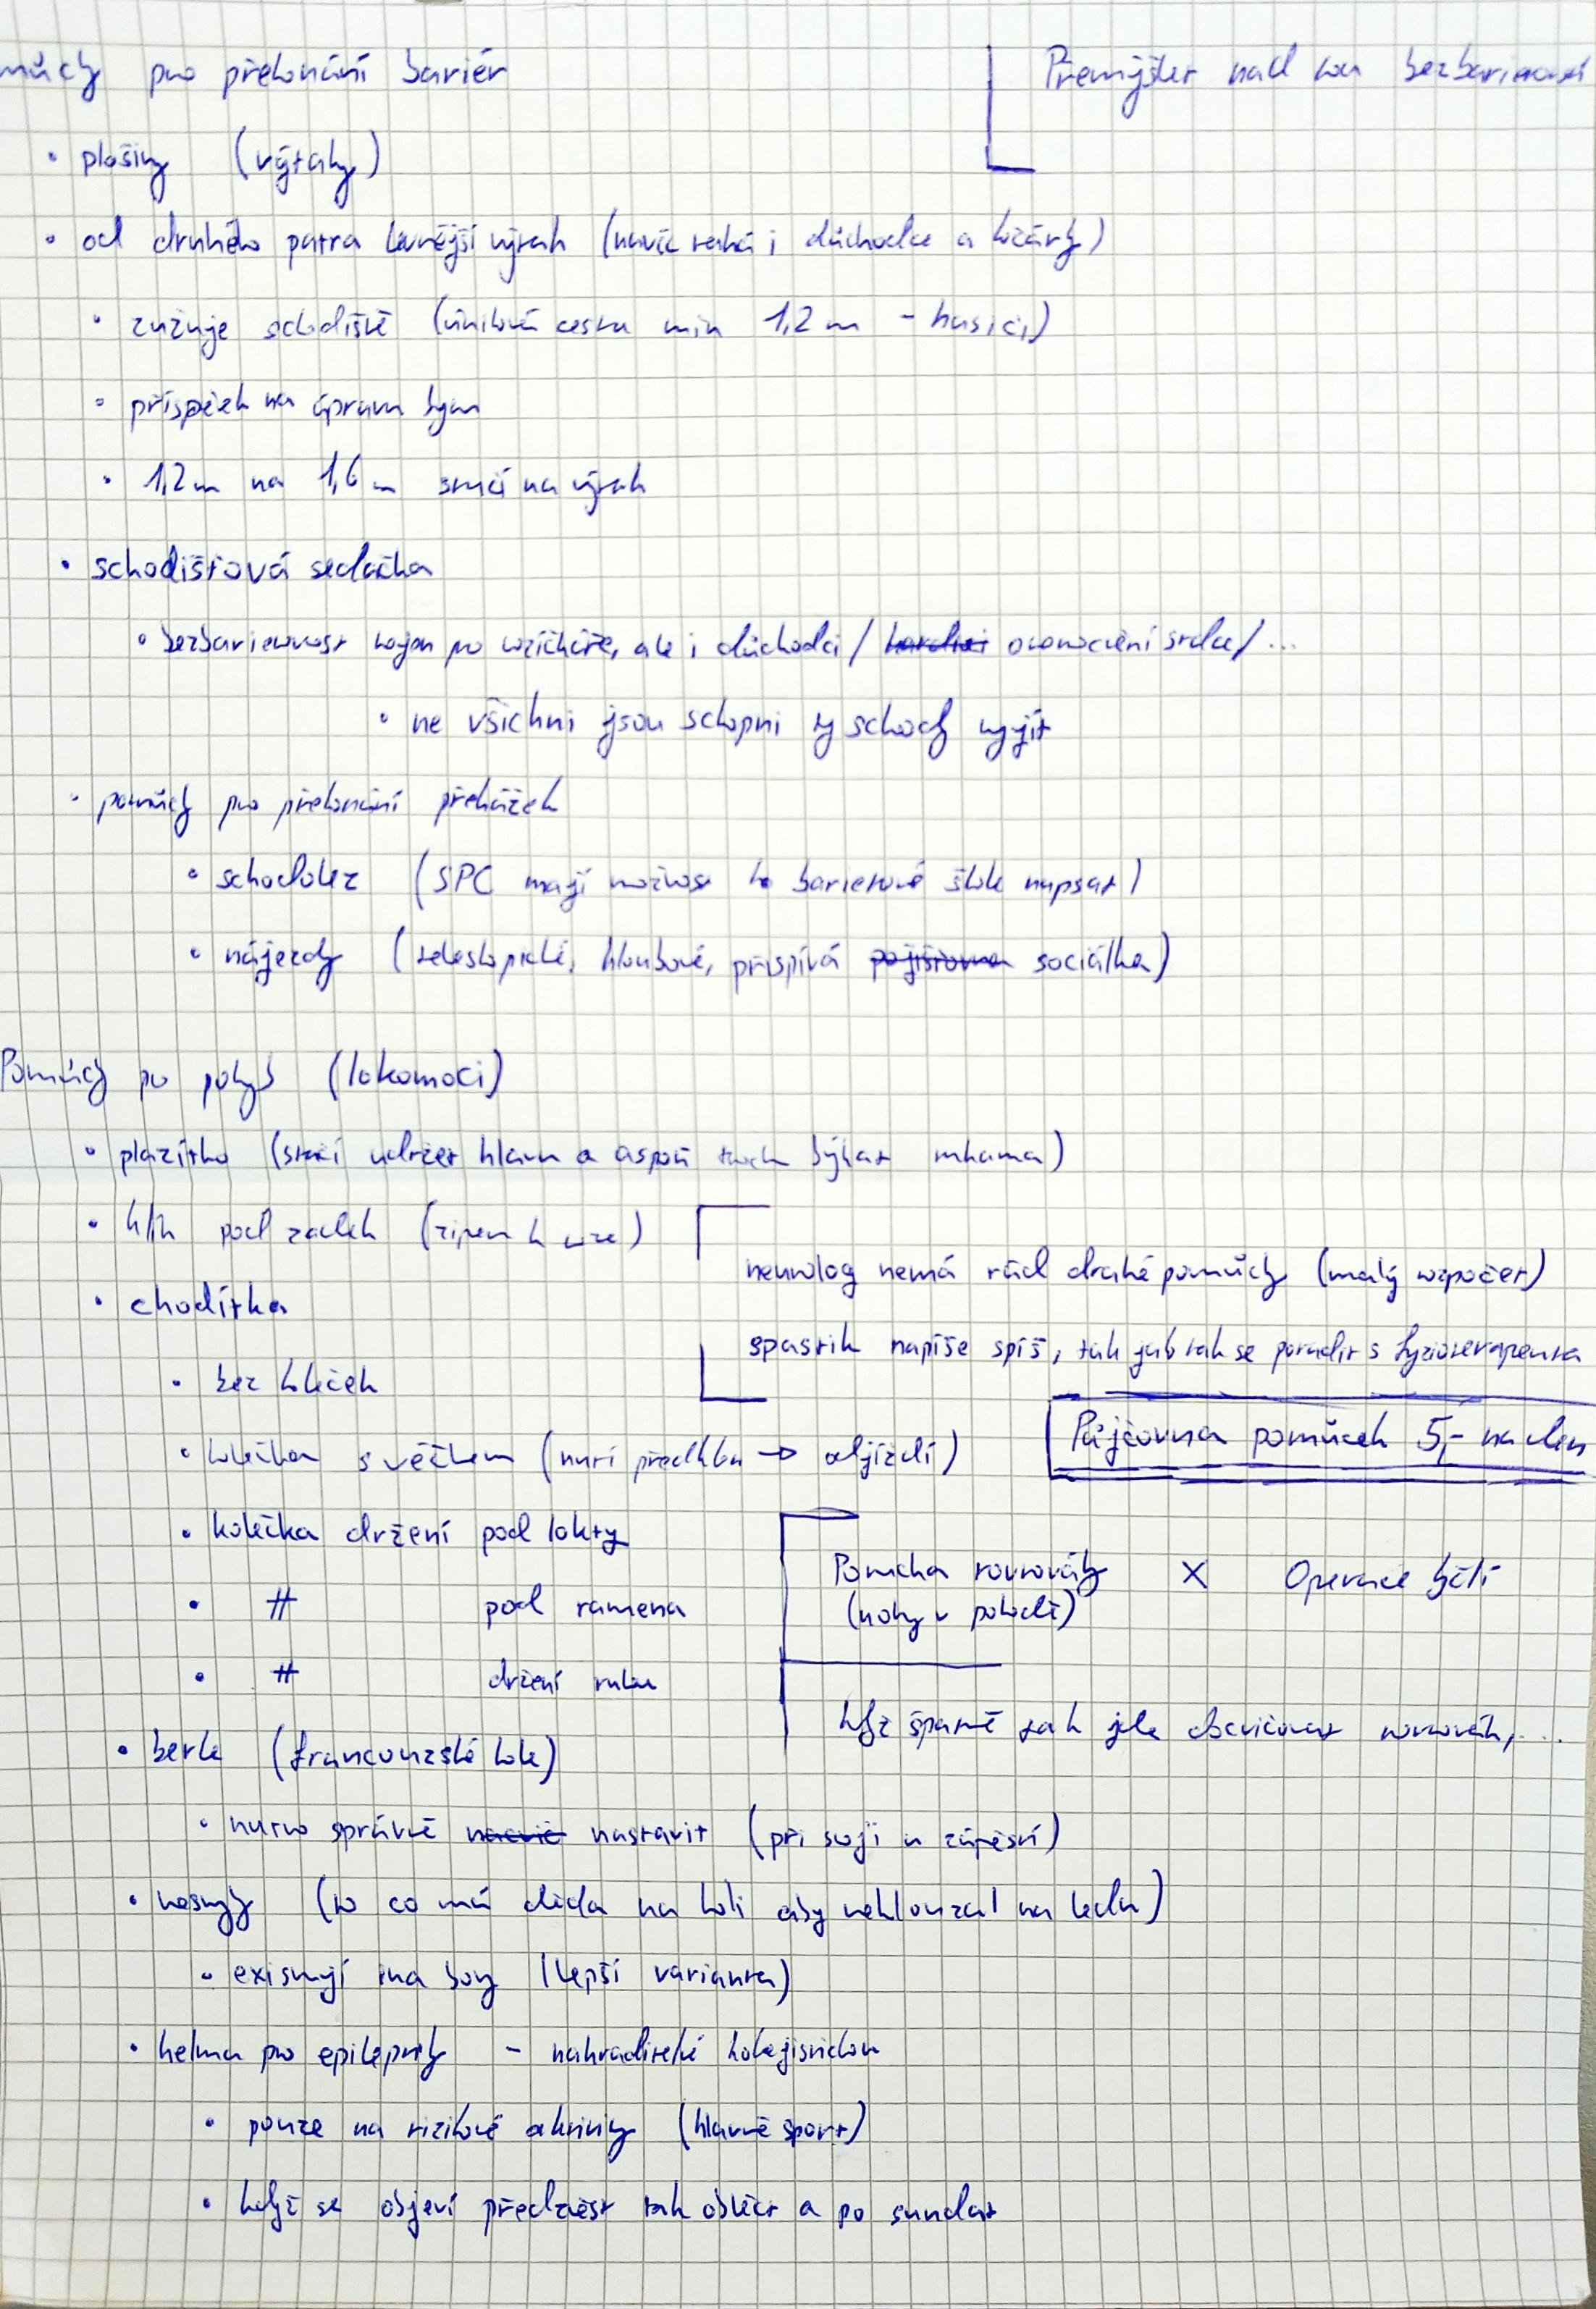 můcky pro překonání bariér
Přemýšlet nad tou bezbariérovostí
• plošiny (výtahy)
• od druhého patra levnější výtah (navíc tahá i důchodce a kočárky)
• zužuje schodiště (úniková cesta min 1,2 m - hasiči)
• příspěvek na úpravu bytu
• 1,2 m na 1,6 m stačí na výtah
• schodišťová sedačka
• bezbarierovost nejen pro vozíčkáře, ale i důchodci / onemocnění srdce / ...
• ne všichni jsou schopni ty schody vyjít
• pomůcky pro překonání překážek
• schodolez (SPC mají možnost to barierové škole napsat)
• nájezdy (teleskopické, kloubové, přispívá pojišťovna sociálka)
Pomůcky pro pohyb (lokomoci)
• plazítko (stačí udržet hlavu a aspoň trochu hýbat rukama)
• klín pod zadek
neurolog nemá rád drahé pomůcky (malý rozpočet)
• chodítka
spastik napíše spíš, tak jak tak se poradit s fyzioterapeuta
• bez koleček
Půjčovna pomůcek 5,- na den
• kolečka s (nutí předklon → odjíždí)
• kolečka držení pod lokty
Porucha rovnováhy X Operace kyčlí
(nohy v pohodě)
• # pod ramena
• # držení rukou
když špatně tak jde docvičovat rovnováh, ...
• berle (francouzské hole)
• nutno správně nacvič nastavit (při stoji u zápěstí)
• nesmyky (to co má děda na holi aby neklouzal na ledu)
• existují i na boty (lepší varianta)
• helma pro epileptiky - nahraditelé hokejistickou
• pouze na rizikové aktivity (hlavně sport)
• když se objeví předzvěst tak obléct a po sundat